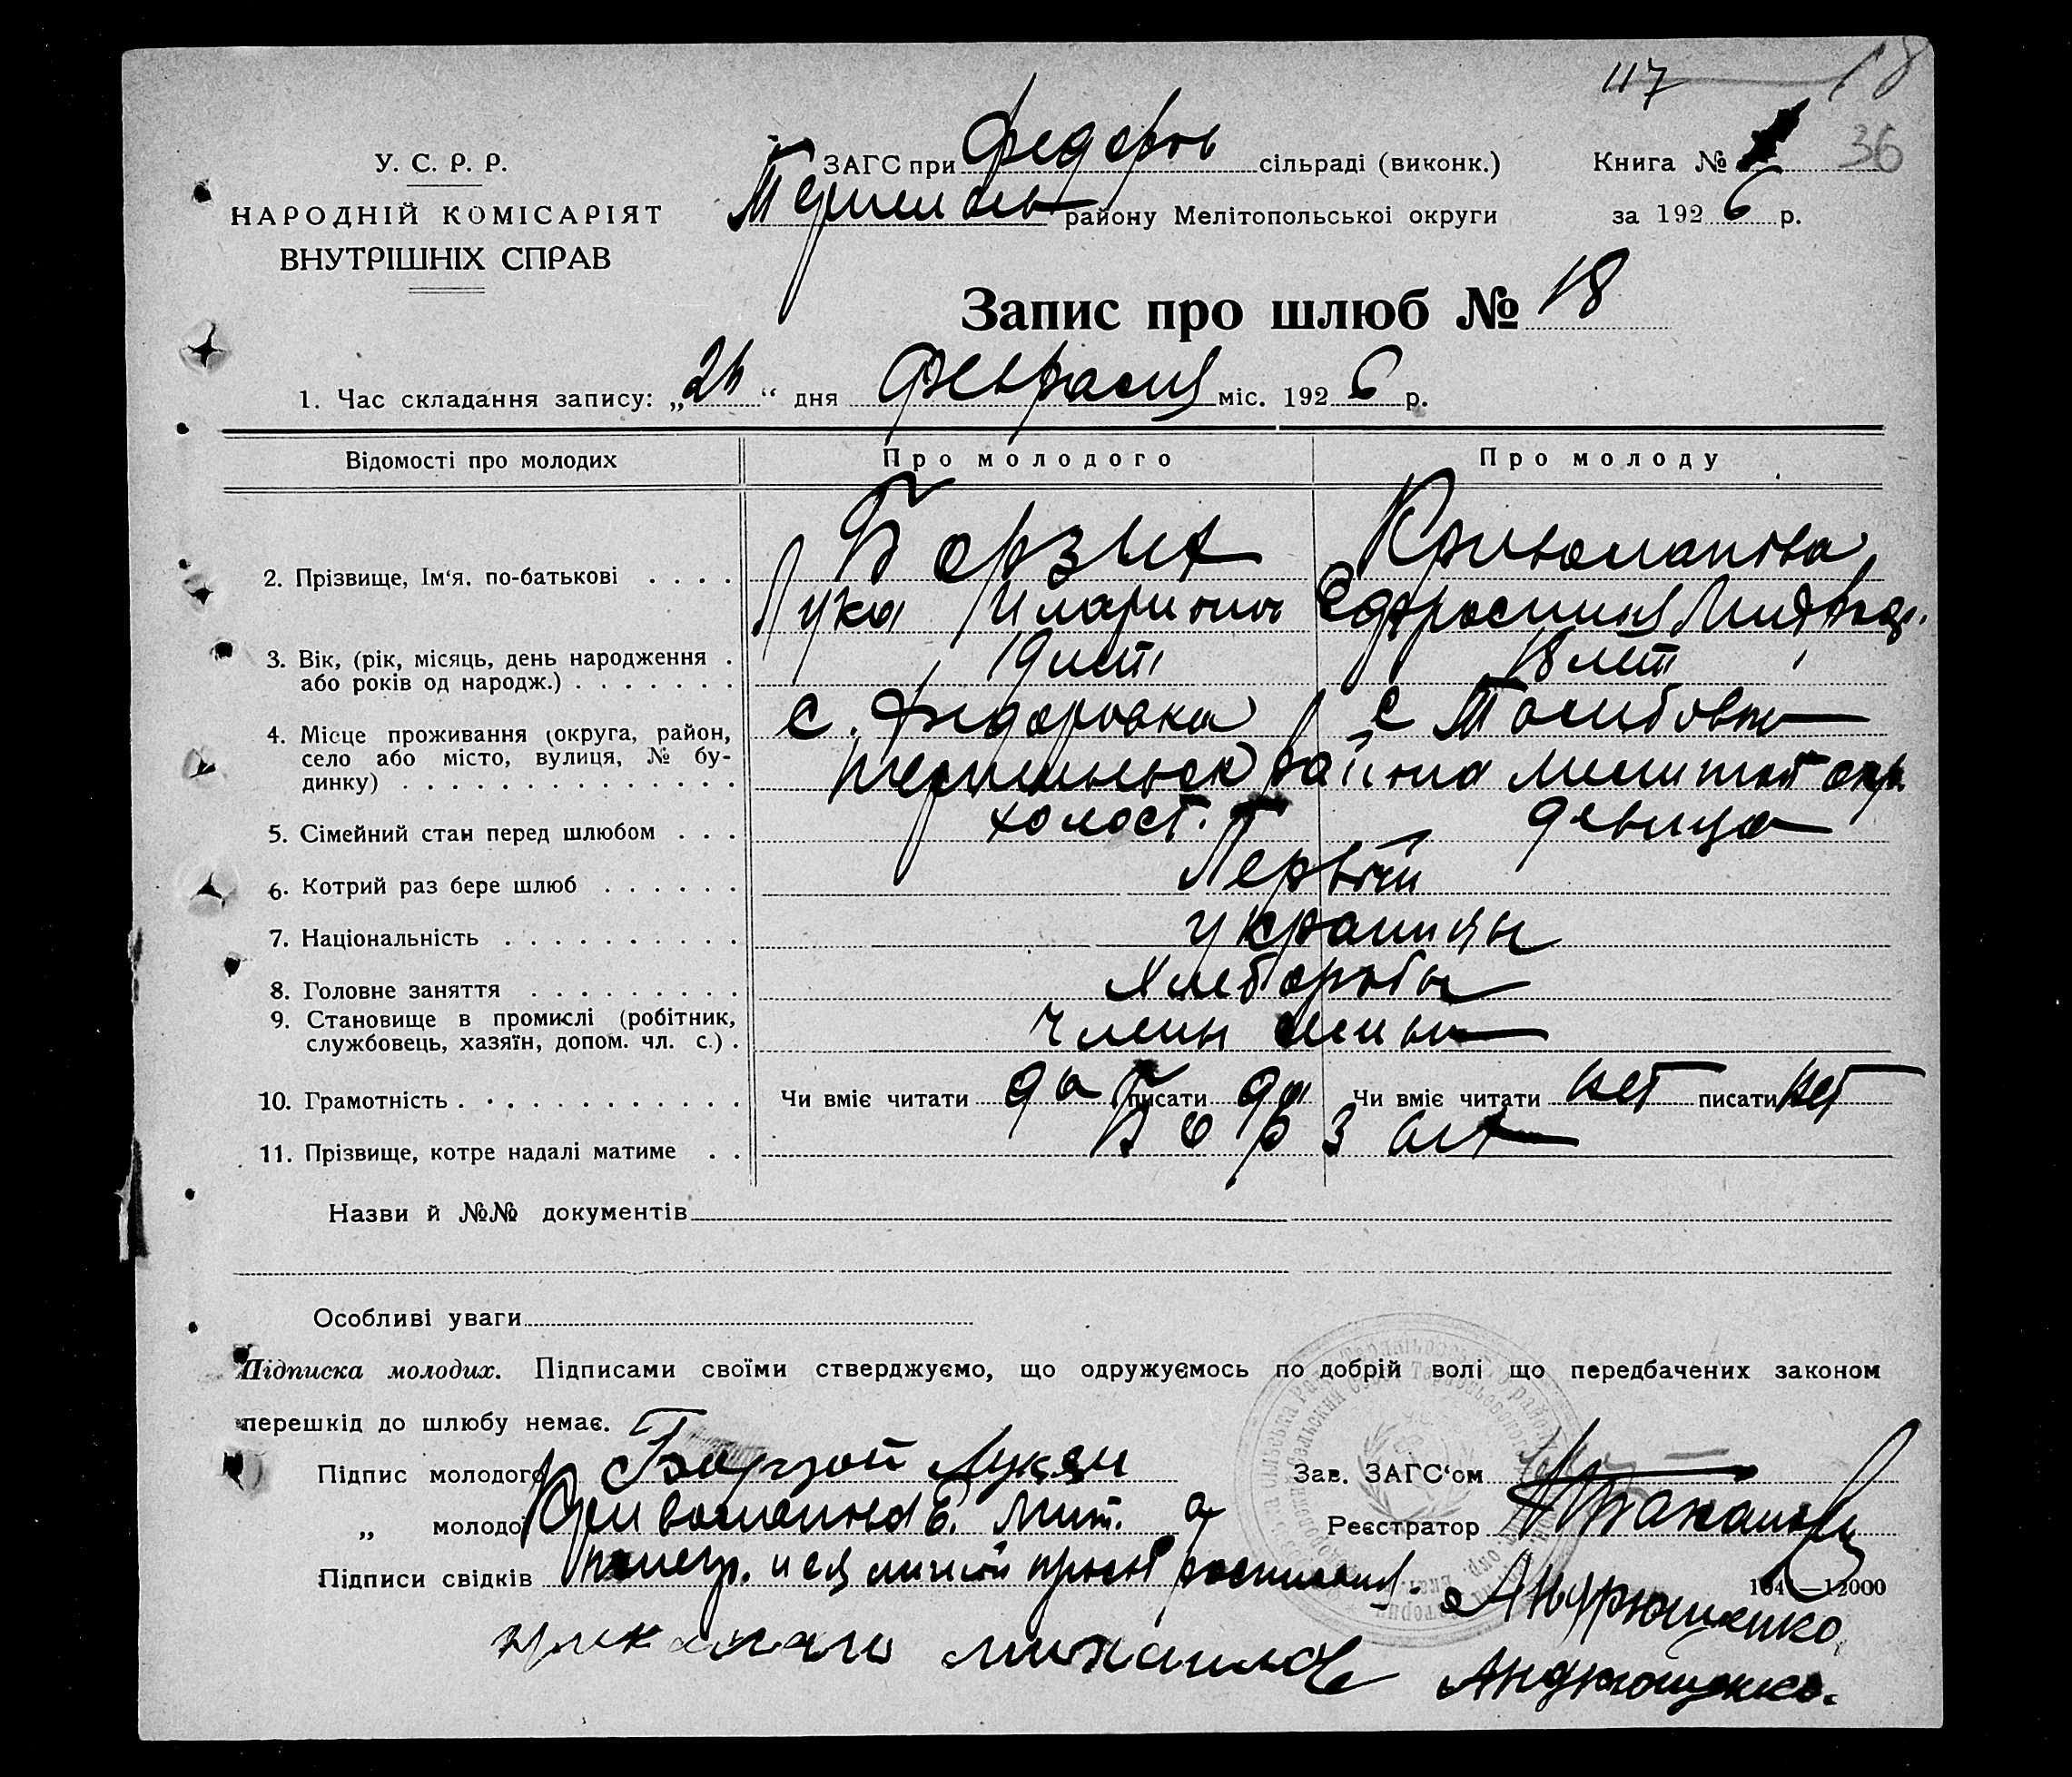 117 18
36
У. С. Р. Р.
НАРОДНІЙ КОМІСАРІЯТ
ВНУТРІШНІХ СПРАВ
ЗАГС при Федоров сільраді (виконк.)
Терпеньев району Мелітопольської округи
Книга № 1
за 1926 р.
Запис про шлюб № 18
1. Час складання запису: „26“ дня февраля міс. 1926 р.
Відомості про молодих Про молодого Про молоду
2. Прізвище, Ім‘я. по-батькові . . . . Борзых Кривошапова
Лука Иларионов Ефросиния
3. Вік, (рік, місяць, день народження . 19 лет 18 лет
або років од народж.) . . . . . . .
4. Місце проживання (округа, район, с. Федоровка с
село або місто, вулиця, № бу- района Мелитоп окр
динку) . . . . . . . . . . . . . .
5. Сімейний стан перед шлюбом . . . холост. девица
6. Котрий раз бере шлюб . . . . . . Первый
7. Національність . . . . . . . . . . украинцы
8. Головне заняття . . . . . . . . . Хлеборобы
9. Становище в промислі (робітник, члены семьи
службовець, хазяїн, допом. чл. с.) .
10. Грамотність . . . . . . . . . . . . Чи вміє читати да писати да Чи вміє читати нет писати нет
11. Прізвище, котре надалі матиме . . Борзых
Назви й №№ документів
Особливі уваги
Підписка молодих. Підписами своїми стверджуємо, що одружуємось по добрій волі що передбачених законом
перешкід до шлюбу немає.
Підпис молодого Борзой Лукян Зав. ЗАГС‘ом
„ молодо Е. Мит. а Реєстратор
Підписи свідків негр. и ея личной прозб росписался. Андрющенко
164—12000
Андрющенко.